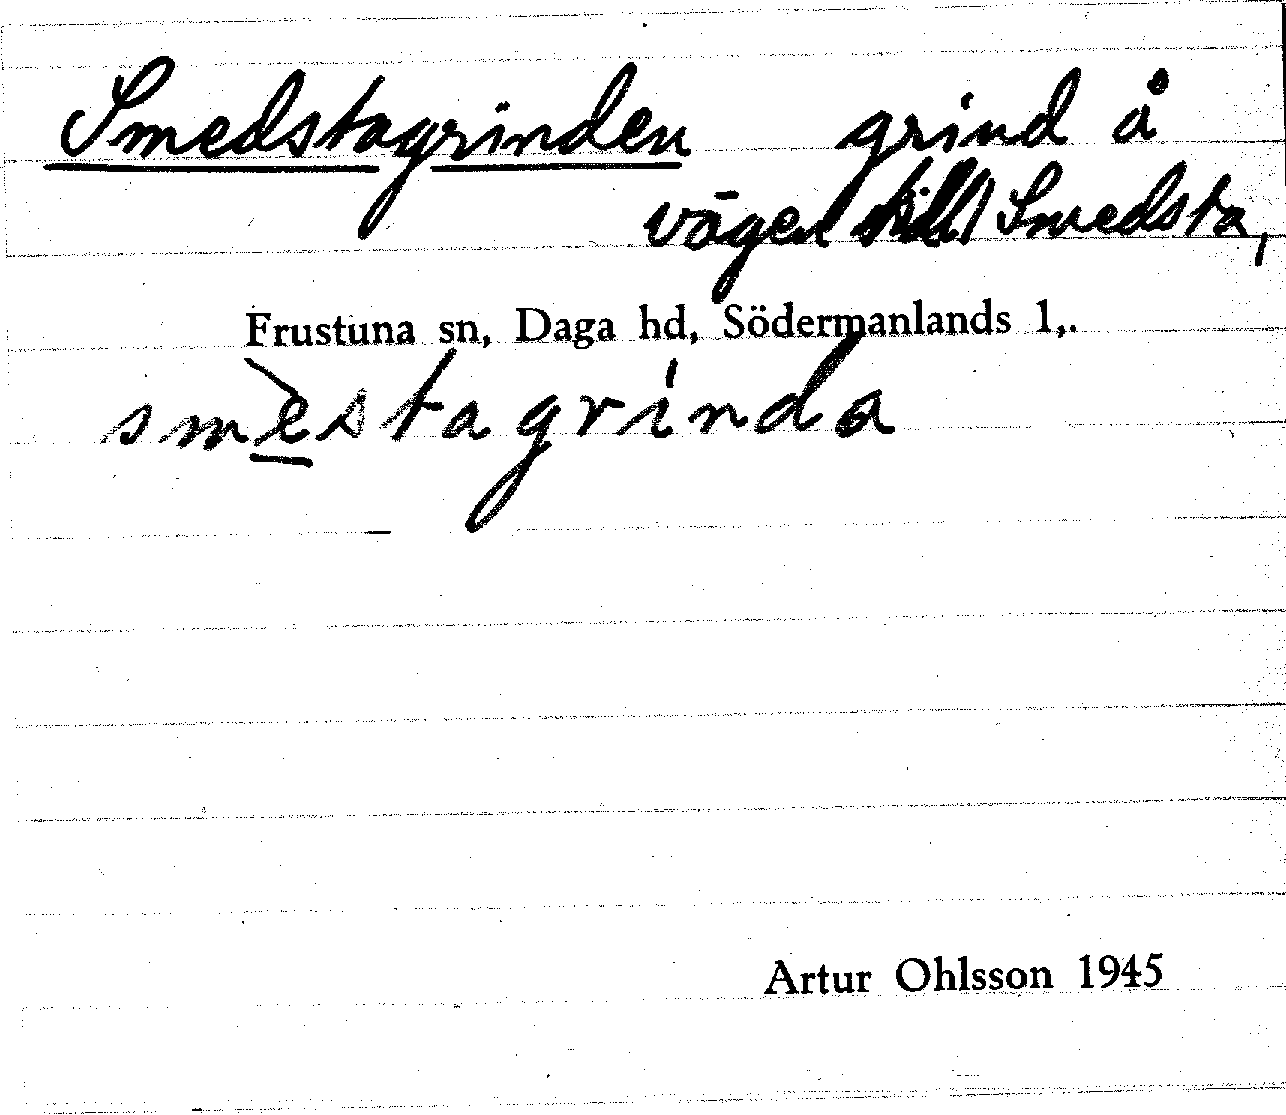 Smedstagrinden grind å
vägen till Smedsta,
Frustuna sn, Daga hd, Södermanlands l,.
smèstagrinda
Artur Ohlsson 1945